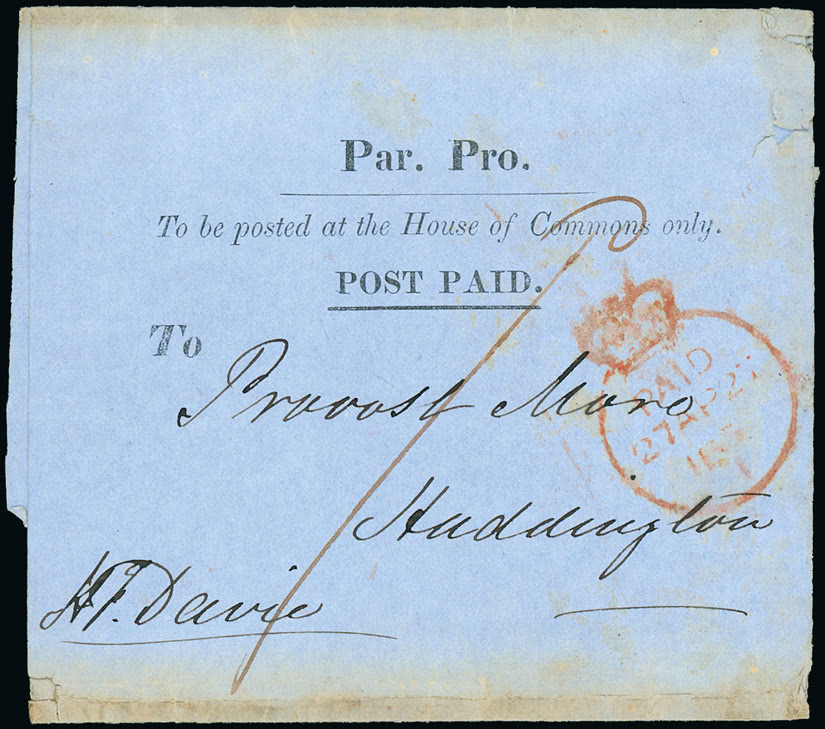 Par. Pro.
To be posted at the House of Commons only.
POST PAID.
To
Provost More
Haddington
H F. Davie
PAID
27 AP 27